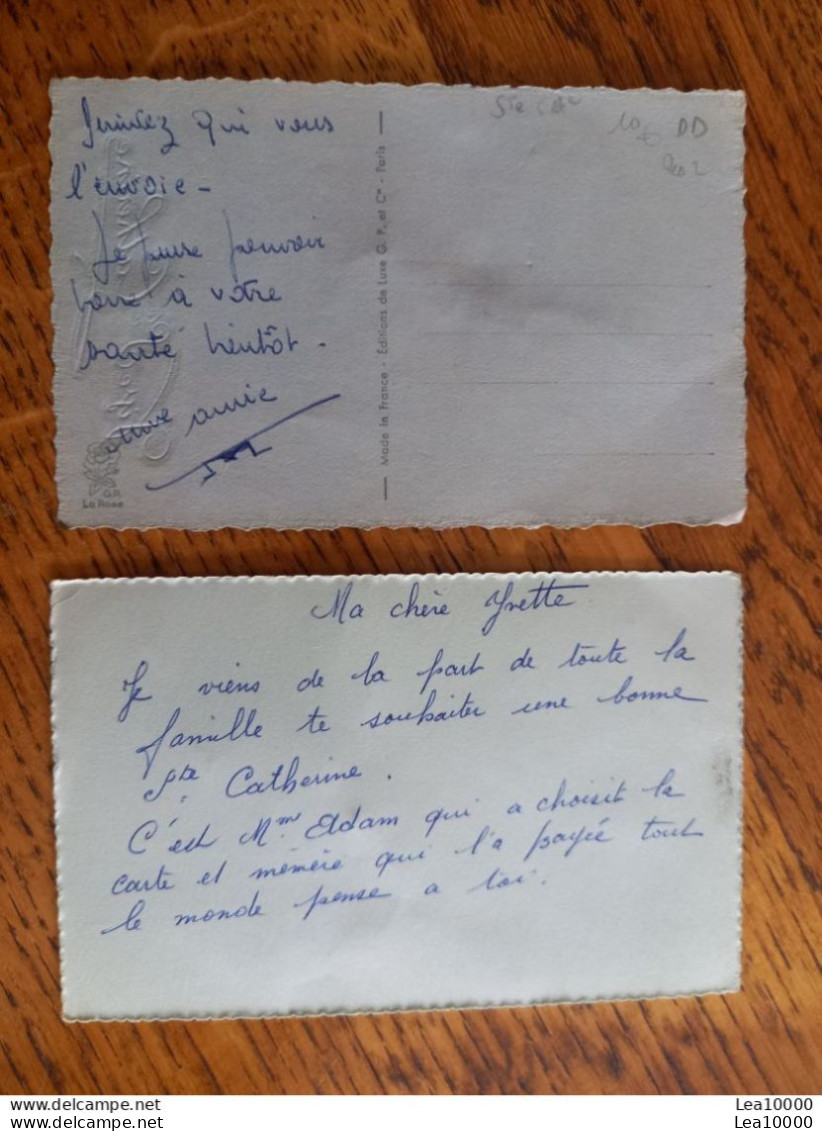 Devinez qui vous
l'envoie -
Je pense pouvoir
boire à votre
santé bientôt -
une amie
La Rose
Made in France - Éditions de Luxe G. P. et Cie - Paris
Ste Cat
10
DD
Ma chère Yvette
Je viens de la part de toute la
famille te souhaiter une bonne
Ste Catherine.
C'est Mme Adam qui a choisit la
carte et mémère qui l'a payée tout
le monde pense a toi.
www.delcampe.net
Lea10000
www.delcampe.net
Lea10000